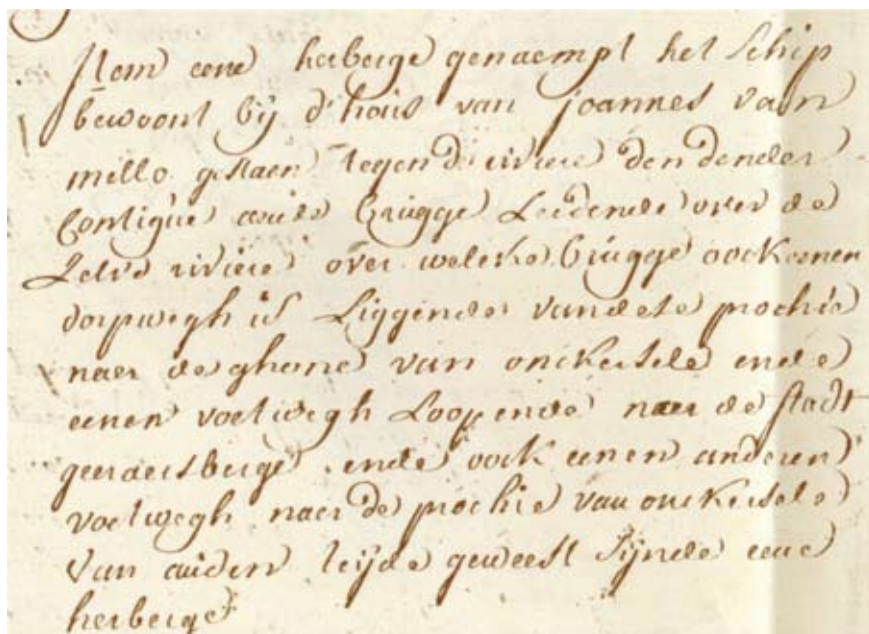 Item eene herberge genaempt het Schip
bewoont bij d'hoirs van joannes van
mello gestaen tegen de riviere den dender
Contigue aen de brugge Leidende over de
Zelve riviere over welcke brugge oock eenen
dorpwegh is Liggende van dese prochie
naer de ghone van onckersele ende
eenen voetwegh Loopende naer de stadt
geeraersberge ende oock eenen anderen
voetwegh naer de prochie van onckersele
van auden teijde geweest sijnde eene
herberge